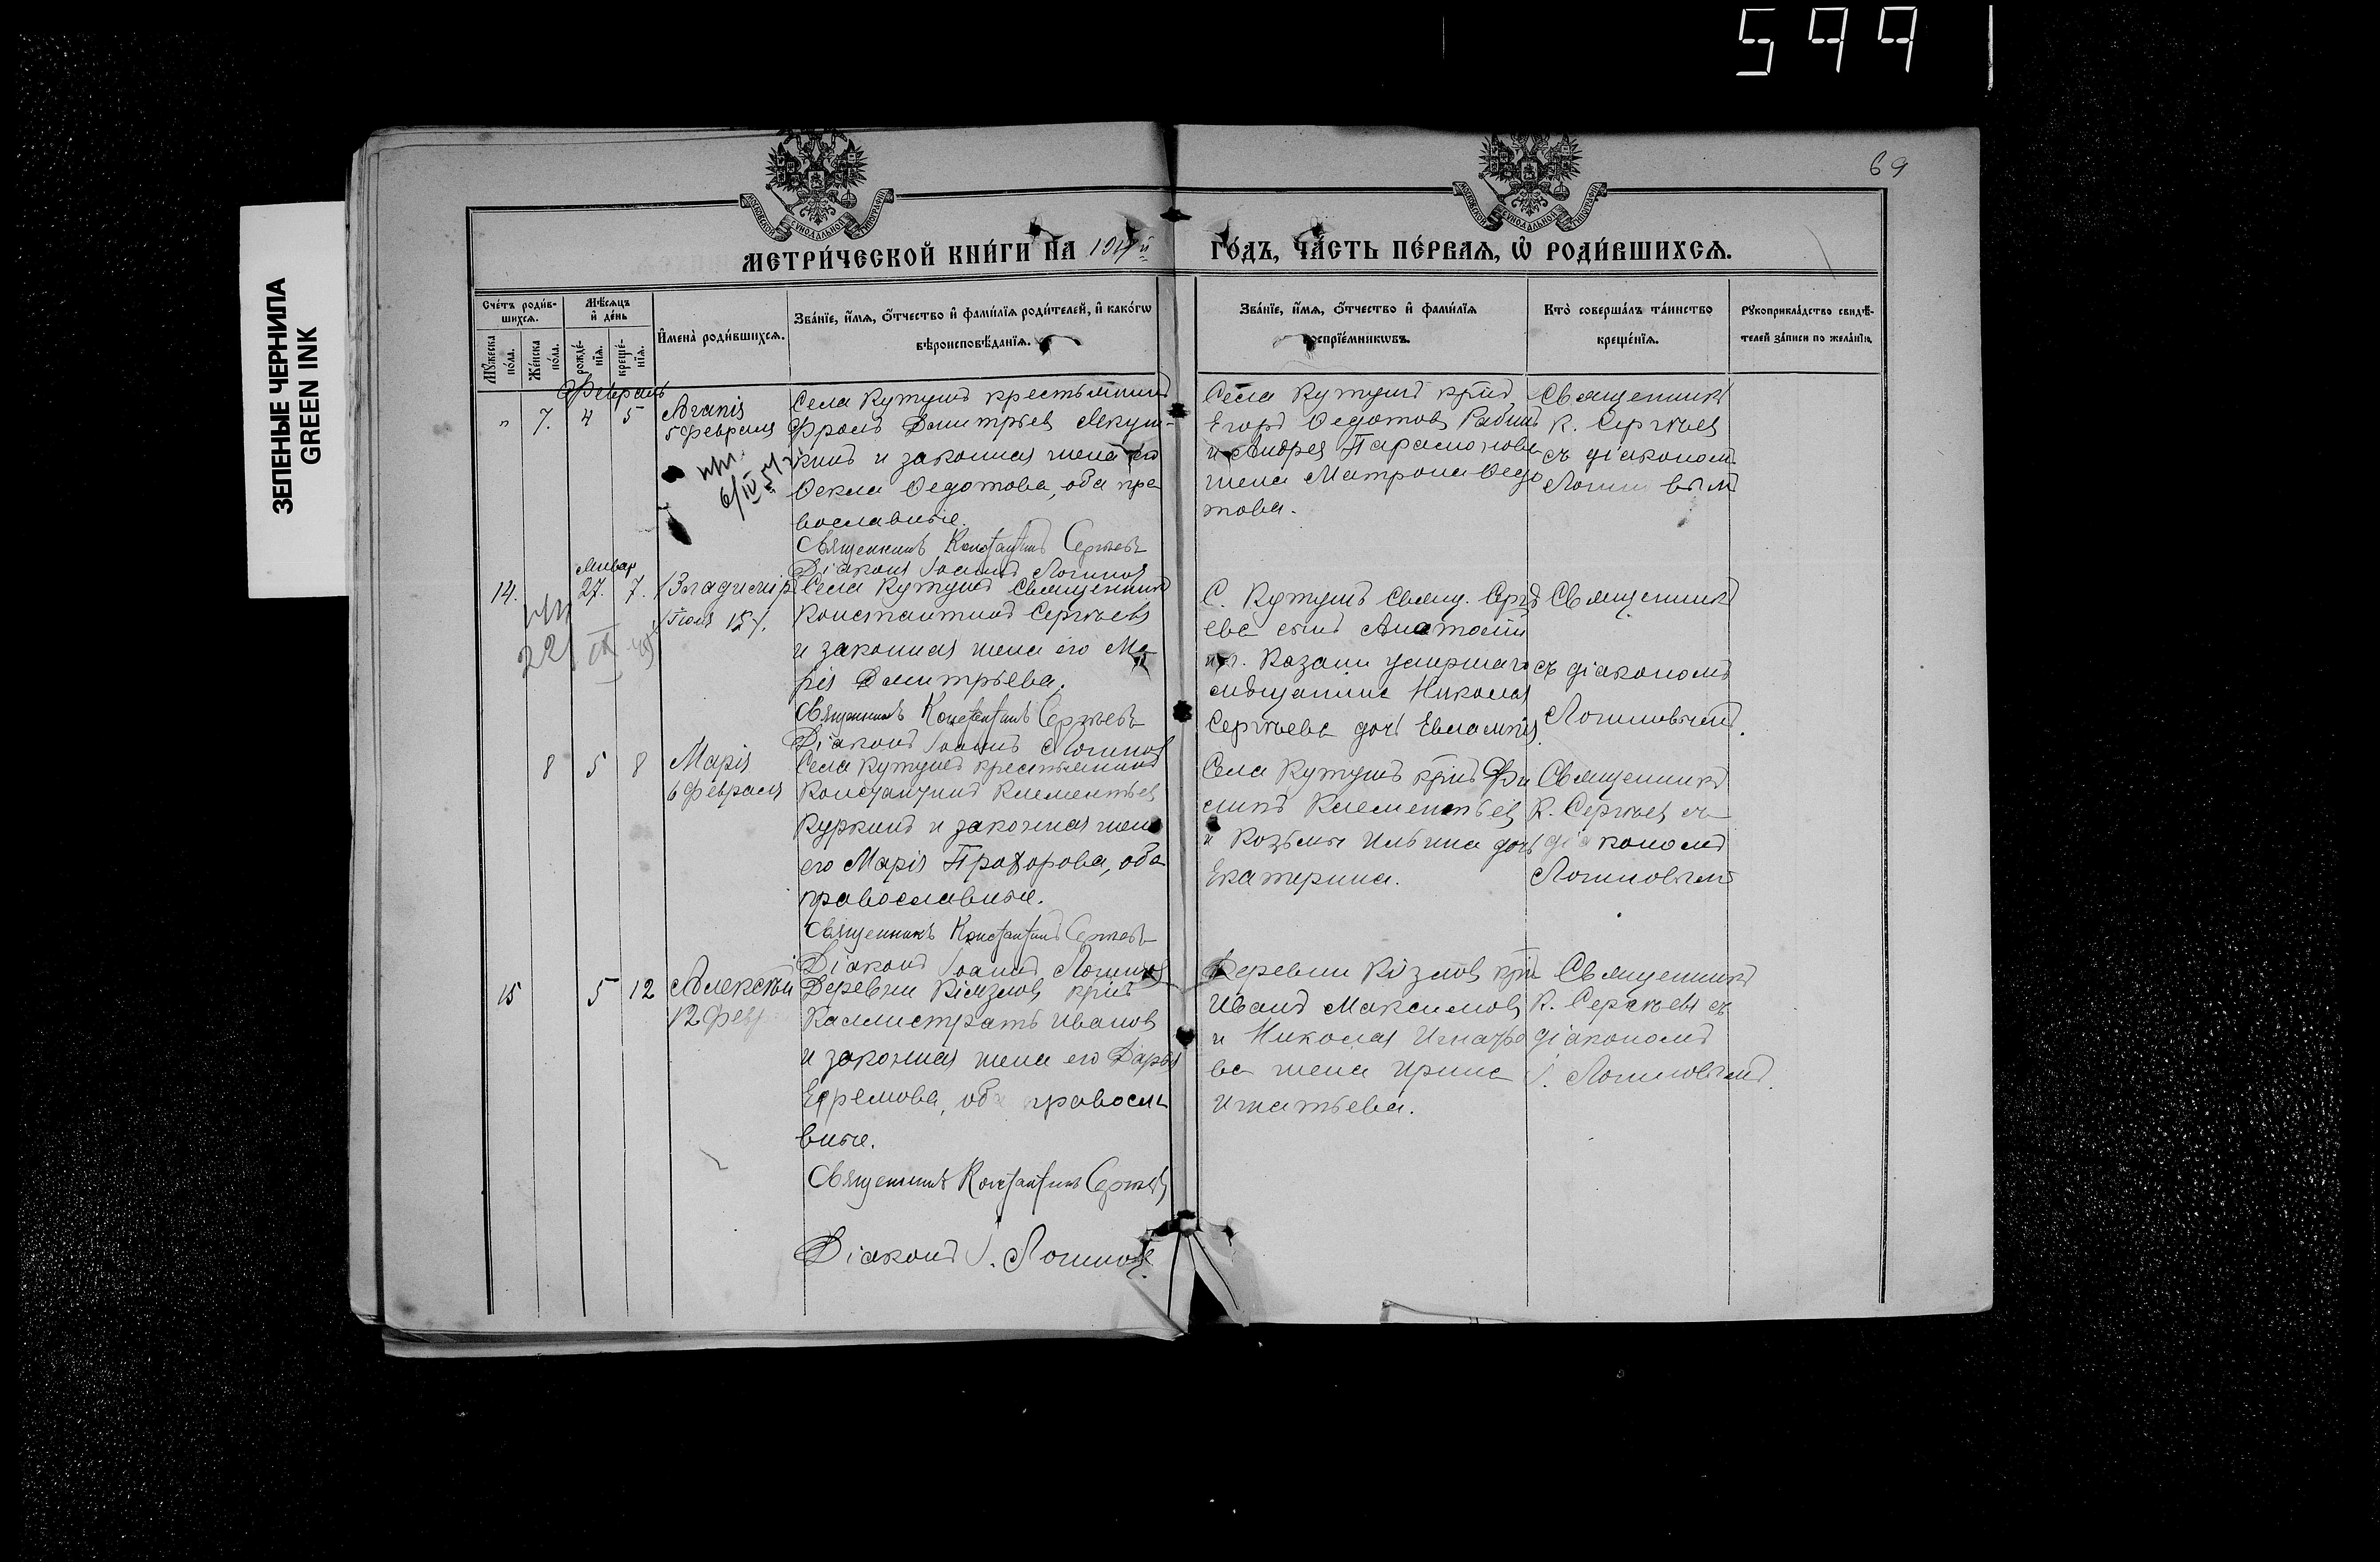 599
69
ЗЕЛЕНЫЕ ЧЕРНИЛА
GREEN INK
МОСКОВСКОЙ СѴНОДАЛЬНОЙ ТИПОГРАФІИ
МОСКОВСКОЙ СѴНОДАЛЬНОЙ ТИПОГРАФІИ
МЕТРИ́ЧЕСКОЙ КНИ́ГИ НА ГО́ДЪ, ЧА́СТЬ ПЕ́РВАѦ, Ѡ҆ РОДИ́ВШИХСѦ.
Сче́тъ роди́в-
шихсѧ.
Мꙋ́жеска по́ла.
Же́нска по́ла.
Мѣ́сѧцъ и҆ де́нь
рожде́-нїѧ.
креще́-нїѧ.
И҆мена̀ роди́вшихсѧ.
Зва́нїе, и҆́мѧ, ѻ҆́тчество и҆ фами́лїѧ роди́телей, и҆ како́гѡ
вѣроисповѣ́данїѧ.
Зва́нїе, и҆́мѧ, ѻ҆́тчество и҆ фами́лїѧ
воспрїе́мникѡвъ.
Кто̀ соверша́лъ та́инство
креще́нїѧ.
Рꙋкоприкла́дство свидѣ́-
телей за́писи по жела́нїю.
Февраль
" 7. 4 5
Агапія
5 февраля
Села Кутушъ крестьянинъ
Фролъ Дмитріев Якуш-
кинъ и законная жена его
Ѳекла Ѳедотова, оба пра
вославные.
Священникъ Константинъ Сергѣевъ
Діаконъ Іоаннъ Логинов
Села Кутушъ крнъ
Егоръ Ѳедотов
и Андрея Парамонова
жена Матрона Ѳедо
това.
Священникъ
К. Сергѣев
съ діаконом
Логиновымъ
Январ
14. 27. 7.
Владиміръ
Іюля 15/.
Села Кутушъ Священникъ
Константинъ Сергѣевъ
и законная жена его Ма
рія Дмитріева.
Священникъ Константинъ Сергѣевъ
Діаконъ Іоаннъ Логинов
С. Кутушъ Свящ. Сергѣ
ева сынъ Анатолій
и г. Казани умершаго
мѣщанина Николая
Сергѣева дочь Евлампія.
Священникъ
съ діакономъ
Логиновымъ.
8 5 8
Марія
6 февраля
Села Кутушъ крестьянинъ
Константинъ Клементьев
Куркинъ и законная жена
его Марія Прохорова, оба
православные.
Священникъ Константинъ Сергѣевъ
Діаконъ Іоаннъ Логинов
Села Кутушъ крнъ Фи
липъ Клементьев
и Козьмы Ильина дочь
Екатерина.
Священникъ
К. Сергѣев съ
діакономъ
Логиновымъ
15 5 12
Алексѣй
12 февр
Деревни крнъ
Каллистратъ Иванов
и законная жена его Дарья
Ефремова, оба правосла
вные.
Священникъ Константинъ Сергѣев
Діаконъ І. Логинов
Деревни крнъ
Иванъ Максимов
и Николая Игнатье
ва жена Ирина
Игнатьева.
Священникъ
К. Сергѣевъ съ
діакономъ
І. Логиновымъ.